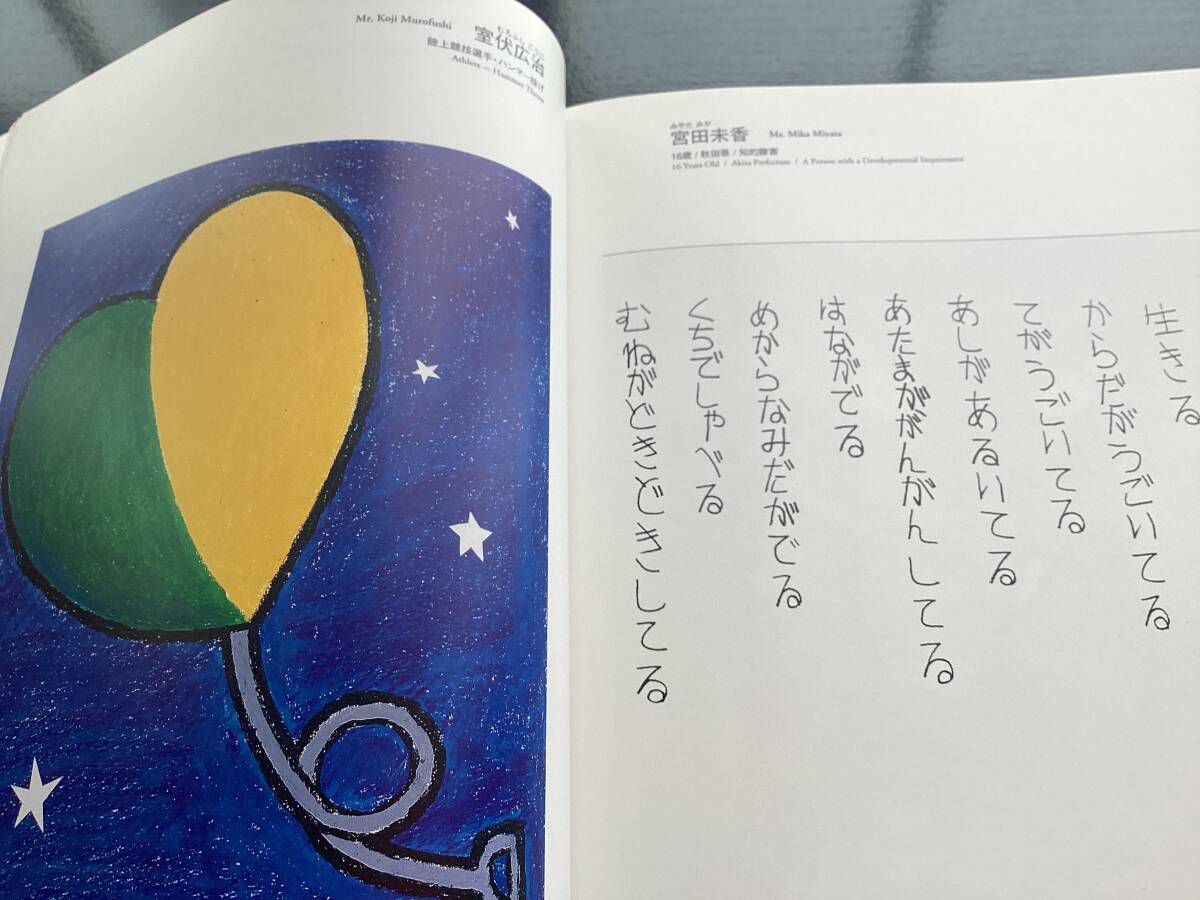 Mr. Koji Murofushi
むろふし こうじ
室伏広治
陸上競技選手・ハンマー投げ
Athlete — Hammer Throw
みやた みか
宮田未香
Ms. Mika Miyata
16歳 / 秋田県 / 知的障害
16 Years Old / Akita Prefecture / A Person with a Developmental Impairment
生きる
からだがうごいてる
てがうごいてる
あしがあるいてる
あたまががんがんしてる
はながでる
めからなみだがでる
くちでしゃべる
むねがどきどきしてる